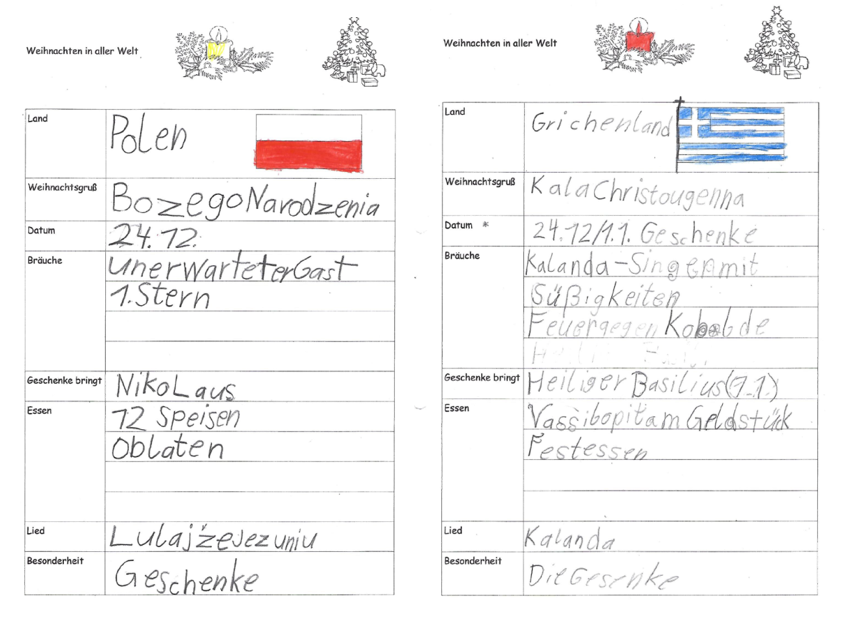 Weihnachten in aller Welt
Land Polen
Weihnachtsgruß Bozego Narodzenia
Datum 24.12.
Bräuche unerwarteter Gast
1. Stern
Geschenke bringt Nikolaus
Essen 12 Speisen
Oblaten
Lied Lulajże Jezuniu
Besonderheit Geschenke
Weihnachten in aller Welt
Land Grichenland
Weihnachtsgruß Kala Christougenna
Datum * 24.12/1.1. Geschenke
Bräuche Kalanda-Singen mit
Süßigkeiten
Feuer gegen Kobolde
Geschenke bringt Heiliger Basilius (1.1.)
Essen Vassibopita m Geldstück
Festessen
Lied Kalanda
Besonderheit Die Gesenke